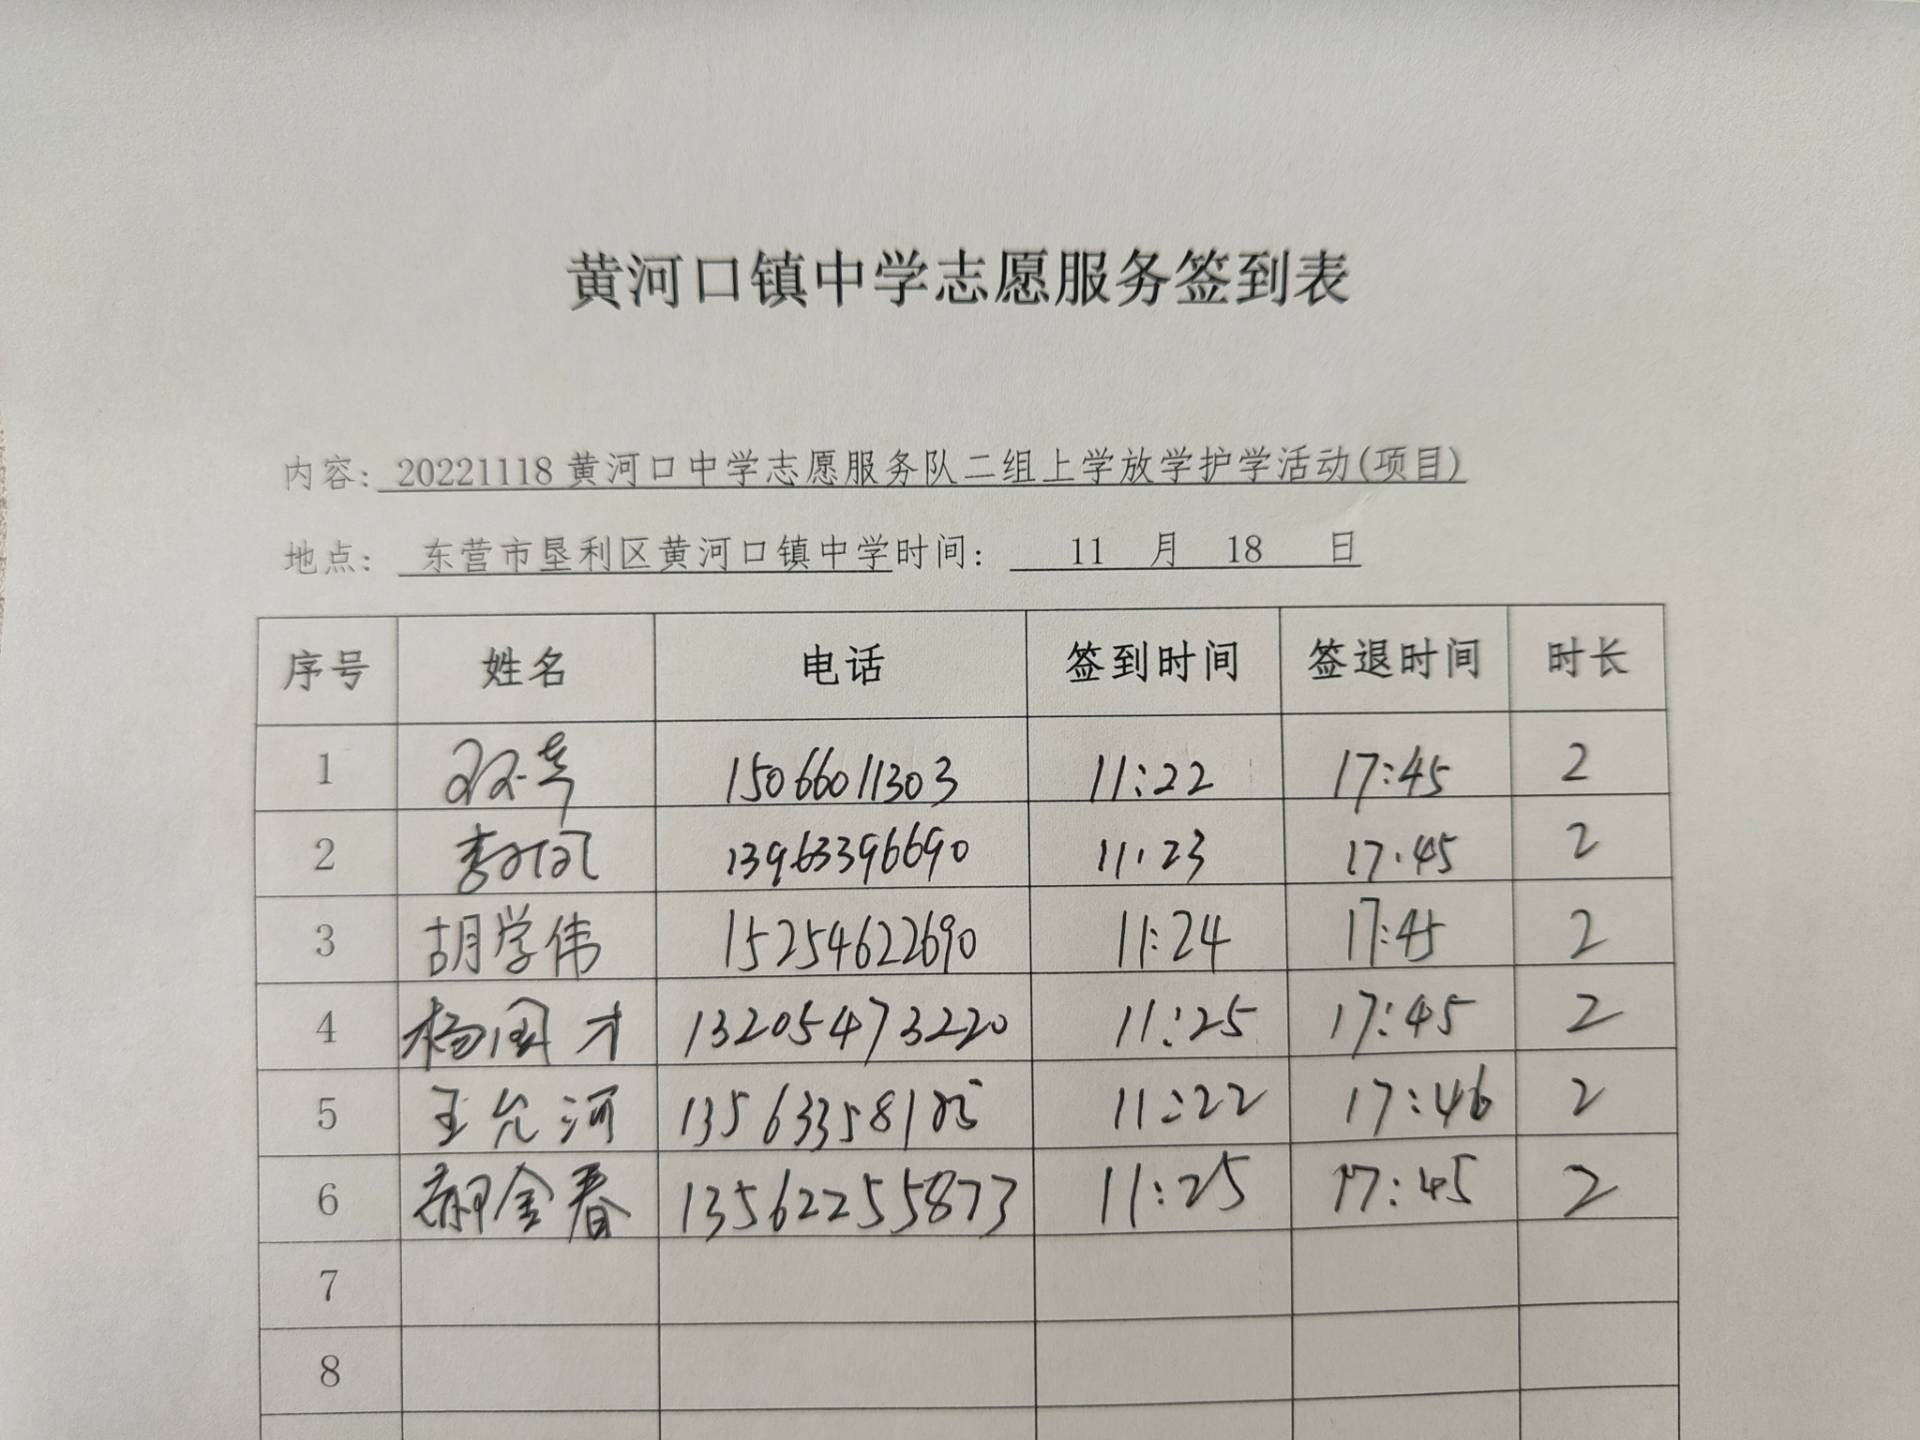 黄河口镇中学志愿服务签到表
内容: 20221118 黄河口中学志愿服务队二组上学放学护学活动(项目)
地点: 东营市垦利区黄河口镇中学时间: 11 月 18 日
序号 姓名 电话 签到时间 签退时间 时长
1 15066011303 11:22 17:45 2
2 13963396690 11:23 17:45 2
3 胡学伟 15254622690 11:24 17:45 2
4 杨国才 13205473220 11:25 17:45 2
5 王允河 11:22 17:46 2
6 郝金春 13562255873 11:25 17:45 2
7
8